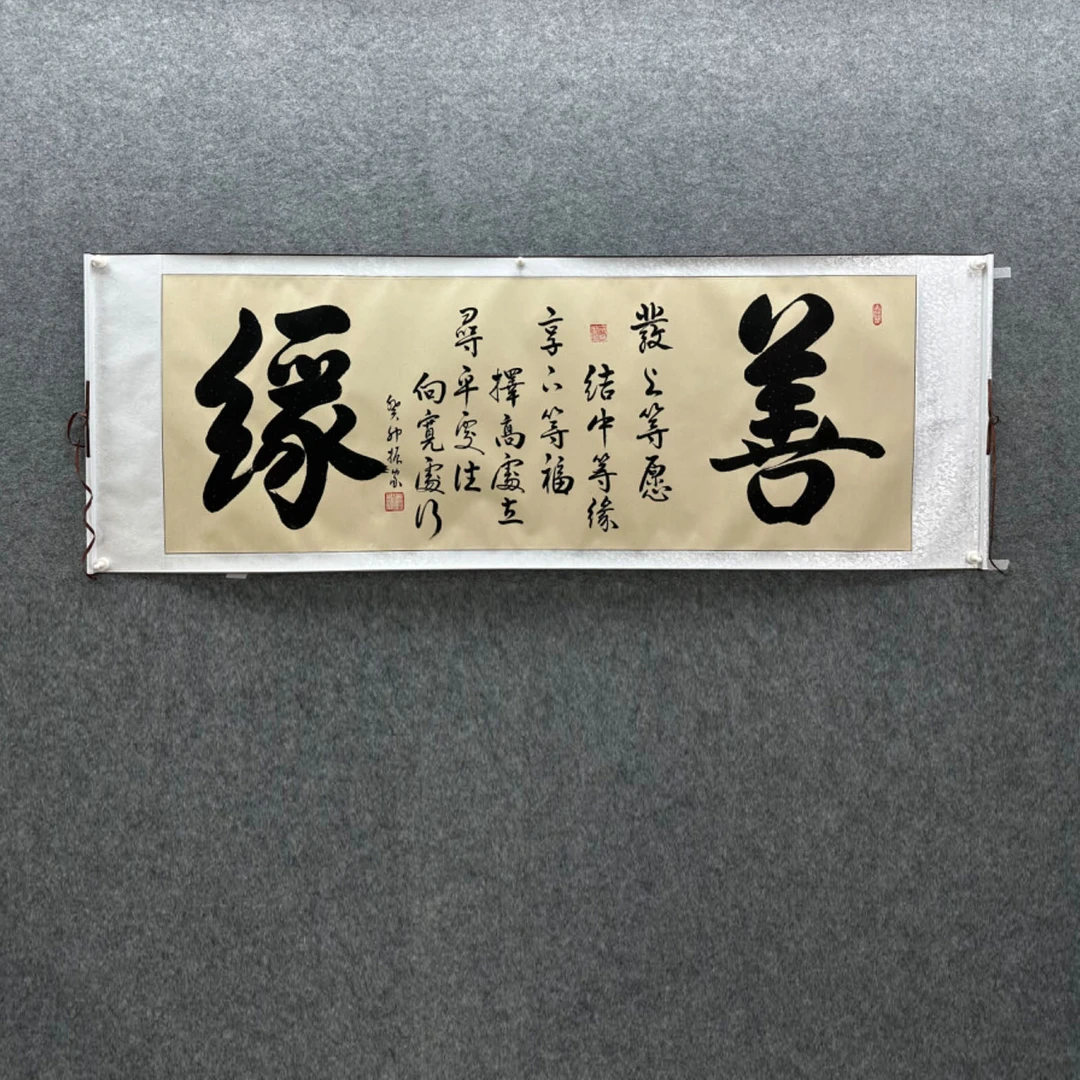 善
發上等愿
结中等缘
享下等福
擇高處立
尋平處住
向寬處行
癸卯振家
缘